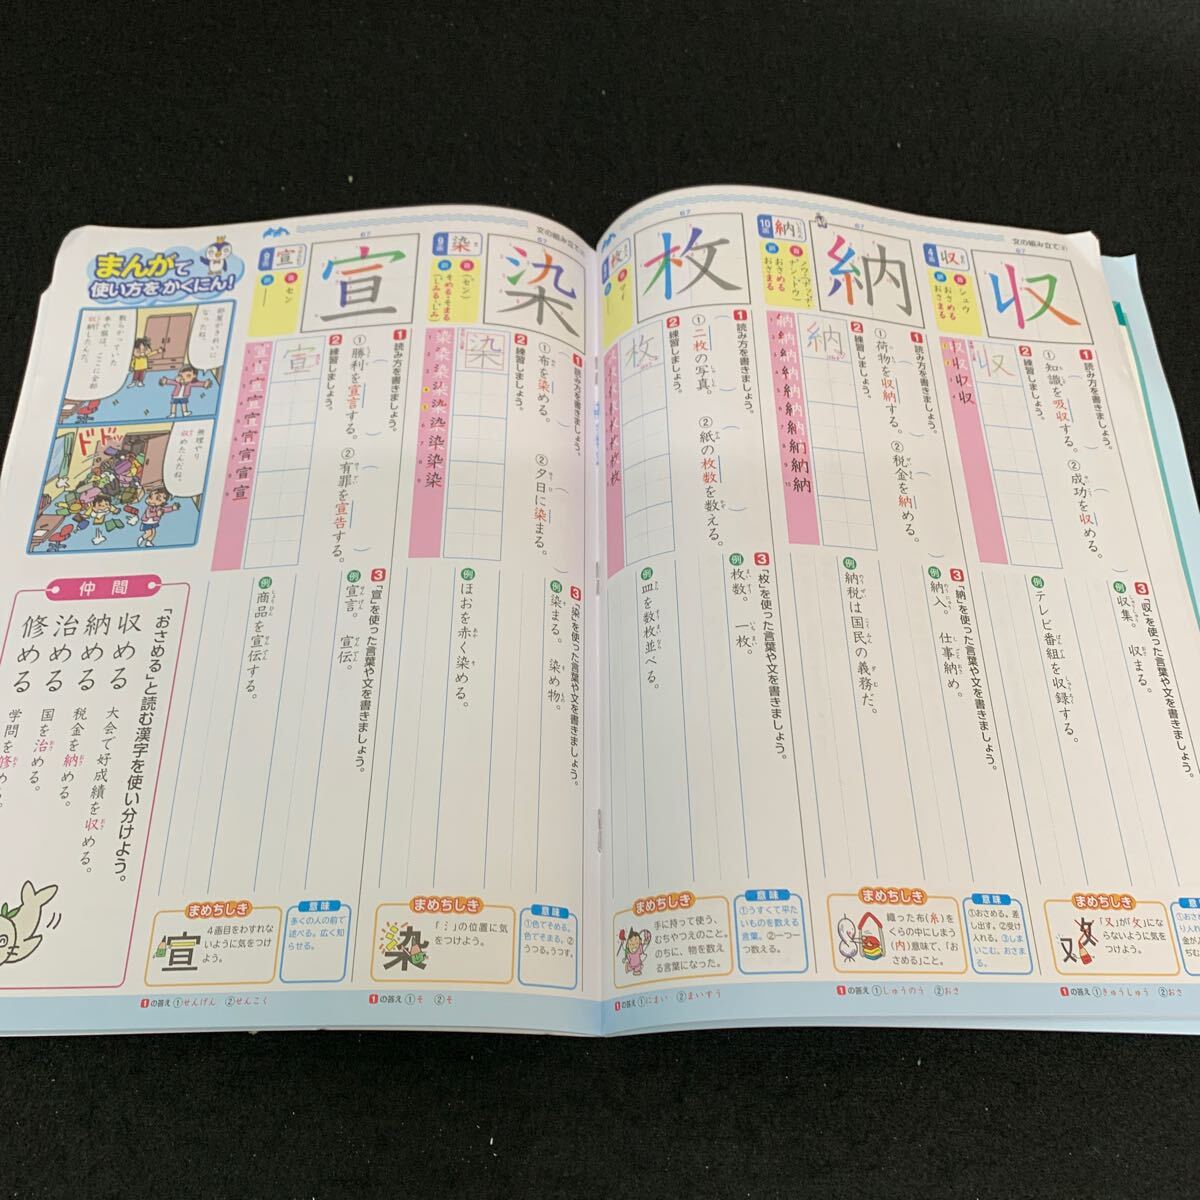 文の組み立て②
67
収
4画
音
シュウ
訓
おさめる
おさまる
収
収収収
1 読み方を書きましょう。
①知識を吸収する。
②成功を収める。
2 練習しましょう。
収
3 「収」を使った言葉や文を書きましょう。
例 収集。 収まる。
例 テレビ番組を収録する。
まめちしき
「又」が「攵」にな
らないように気を
つけよう。
1の答え ①きゅうしゅう ②おさ
67
納
10画
納
訓
おさめる
おさまる
納納納納納納納
1 読み方を書きましょう。
①荷物を収納する。
②税金を納める。
2 練習しましょう。
納
3 「納」を使った言葉や文を書きましょう。
例 納入。 仕事納め。
例 納税は国民の義務だ。
まめちしき
織った布(糸)を
くらの中にしまう
(内)意味で、「お
さめる」こと。
意味
①おさめる。差
し出す。②受け
入れる。③しま
いこむ。おさま
る。
1の答え ①しゅうのう ②おさ
67
枚
音
マイ
枚
1 読み方を書きましょう。
①二枚の写真。
②紙の枚数を数える。
2 練習しましょう。
枚
3 「枚」を使った言葉や文を書きましょう。
例 枚数。 一枚。
例 皿を数枚並べる。
まめちしき
手に持って使う、
むちやつえのこと。
のちに、物を数え
る言葉になった。
意味
①うすくて平た
いものを数える
言葉。②一つ一
つ数える。
1の答え ①にまい ②まいすう
文の組み立て②
67
染
9画
染
音
(セン)
訓
そめる・そまる
(しみる・しみ)
染染染染染染染染染
1 読み方を書きましょう。
①布を染める。
②夕日に染まる。
2 練習しましょう。
染
3 「染」を使った言葉や文を書きましょう。
例 染まる。 染め物。
例 ほおを赤く染める。
まめちしき
「氵」の位置に気
をつけよう。
意味
①色でそめる。
色でそまる。②
うつる。うつす。
1の答え ①そ ②そ
67
宣
9画
宣
音
セン
訓
宣
1 読み方を書きましょう。
①勝利を宣言する。
②有罪を宣告する。
2 練習しましょう。
宣
3 「宣」を使った言葉や文を書きましょう。
例 宣言。 宣伝。
例 商品を宣伝する。
まめちしき
4画目をわすれな
いように気をつけ
よう。
意味
多くの人の前で
述べる。広く知
らせる。
1の答え ①せんげん ②せんこく
まんがで
使い方を、かくにん!
部屋がきれいに
なったね。
散らかっていた
本や服は、ここに全部
収納したんだ。
無理やり
収めたんだね。
ドドッ
仲間
「おさめる」と読む漢字を使い分けよう。
収める 大会で好成績を収める。
納める 税金を納める。
治める 国を治める。
修める 学問を修める。